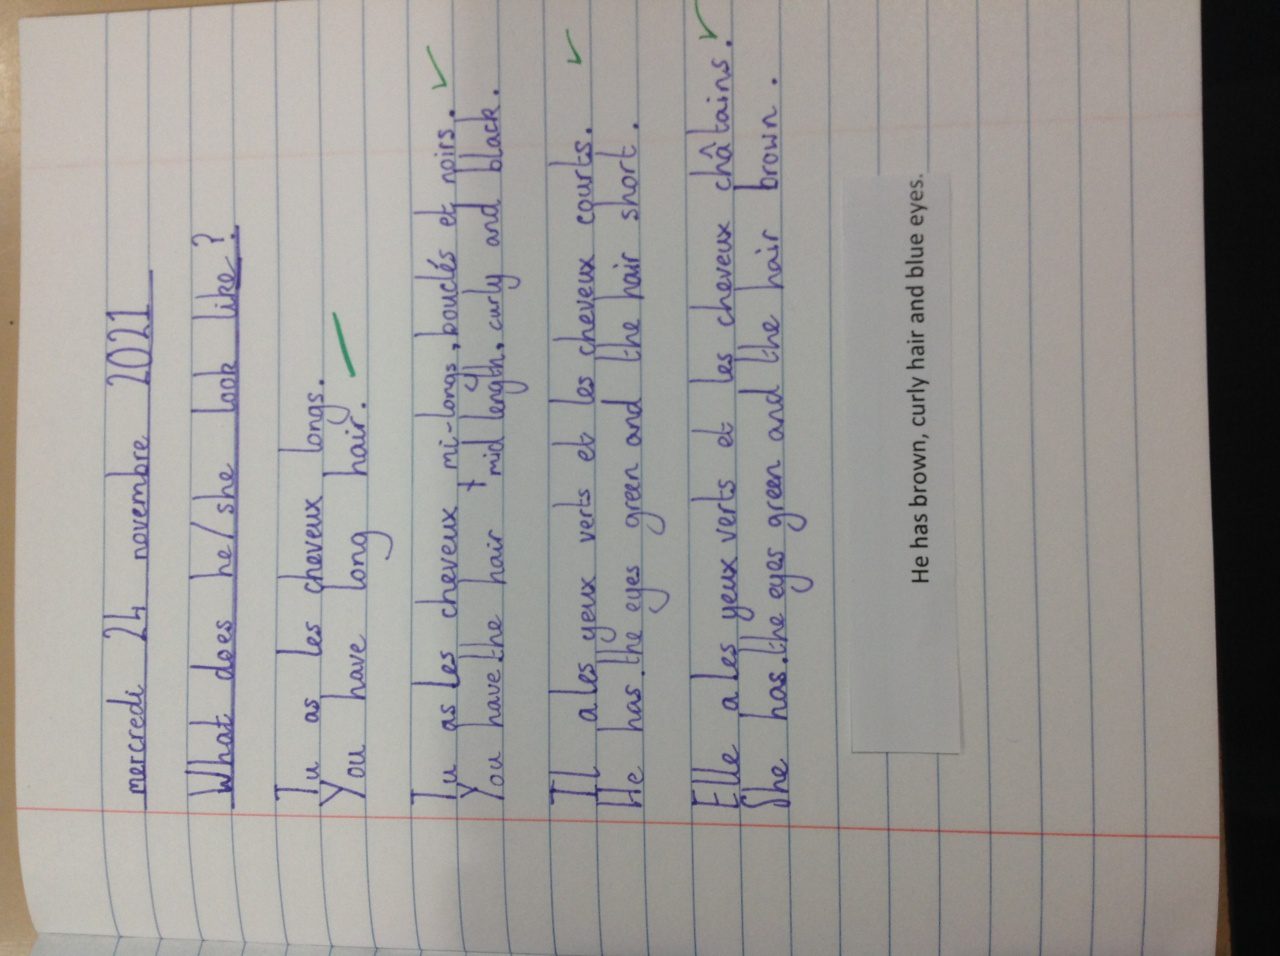 mercredi 24 novembre 2021
What does he/she look like?
Tu as les cheveux longs.
You have long hair.
Tu as les cheveux mi-longs, bouclés et noirs.
You have the hair mid length, curly and black.
Il a les yeux verts et les cheveux courts.
He has the eyes green and the hair short.
Elle a les yeux verts et les cheveux châtains.
She has the eyes green and the hair brown.
He has brown, curly hair and blue eyes.